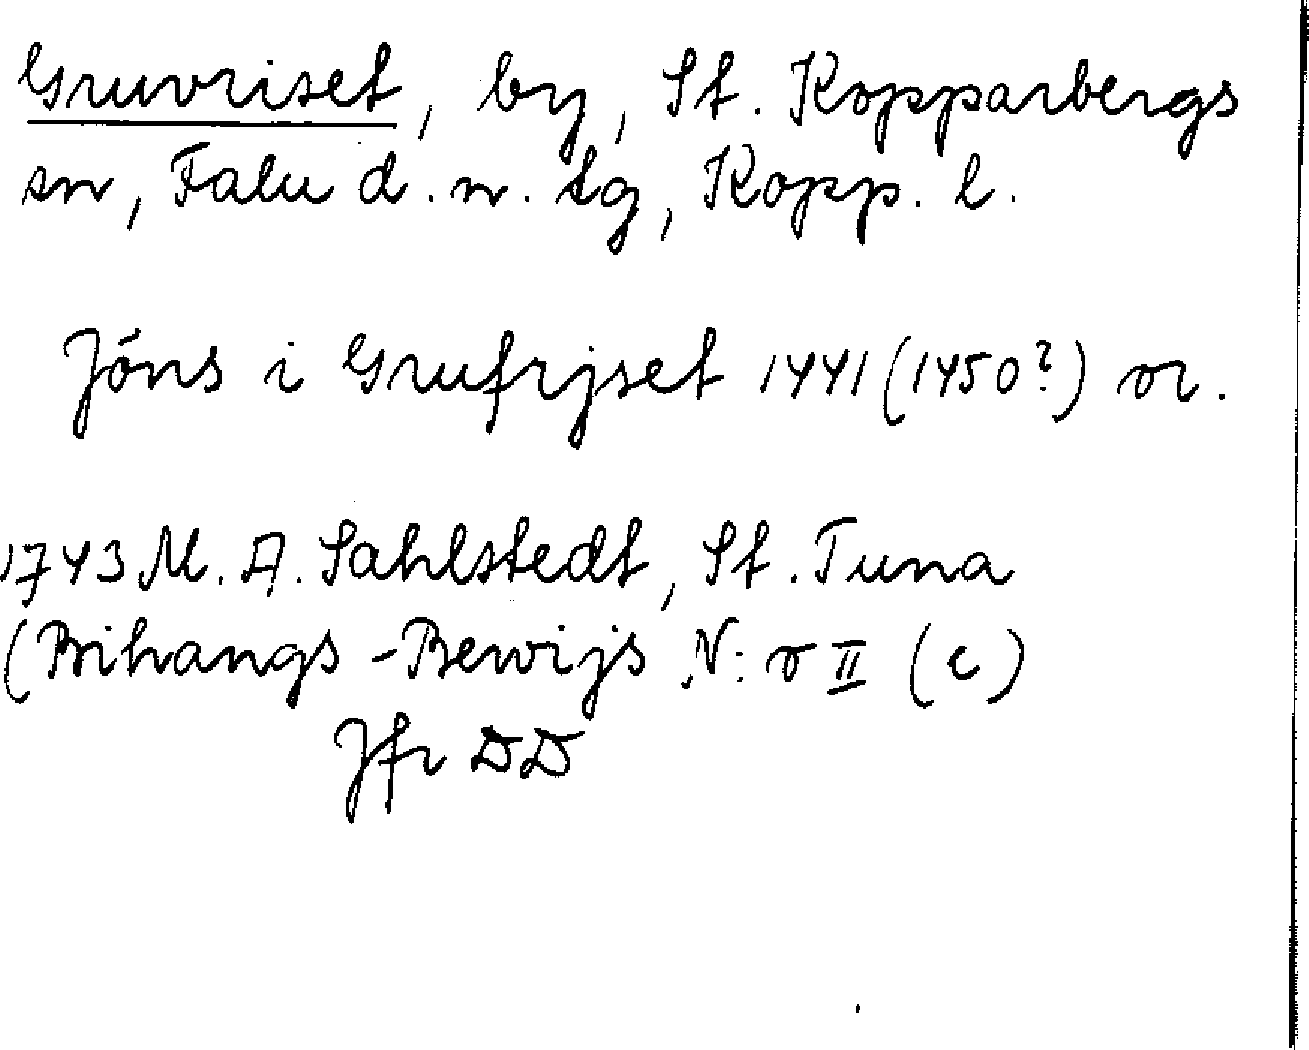 Gruvriset, by, St. Kopparbergs
sn, Falu d. n. tg, Kopp. l.
Jóns i Grufrijset 1441 (1450?) or.
1743 M. A. Sahlstedt, St. Tuna
(Bihangs-Bewijs N:r II (c)
Jfr DD